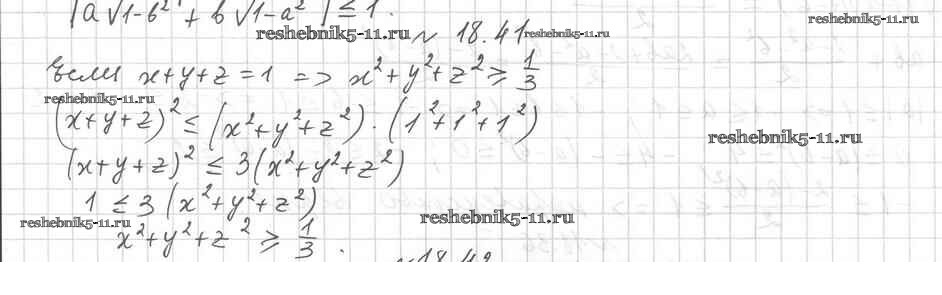 |a√1-b² + b√1-a²| ≤ 1.
reshebnik5-11.ru
№ 18.41
reshebnik5-11.ru
reshebnik5-11.ru
Если x+y+z=1 => x²+y²+z² ≥ 1/3
reshebnik5-11.ru
(x+y+z)² ≤ (x²+y²+z²)·(1²+1²+1²)
reshebnik5-11.ru
(x+y+z)² ≤ 3(x²+y²+z²)
1 ≤ 3(x²+y²+z²)
reshebnik5-11.ru
reshebnik5-11.ru
x²+y²+z² ≥ 1/3.
№18.42